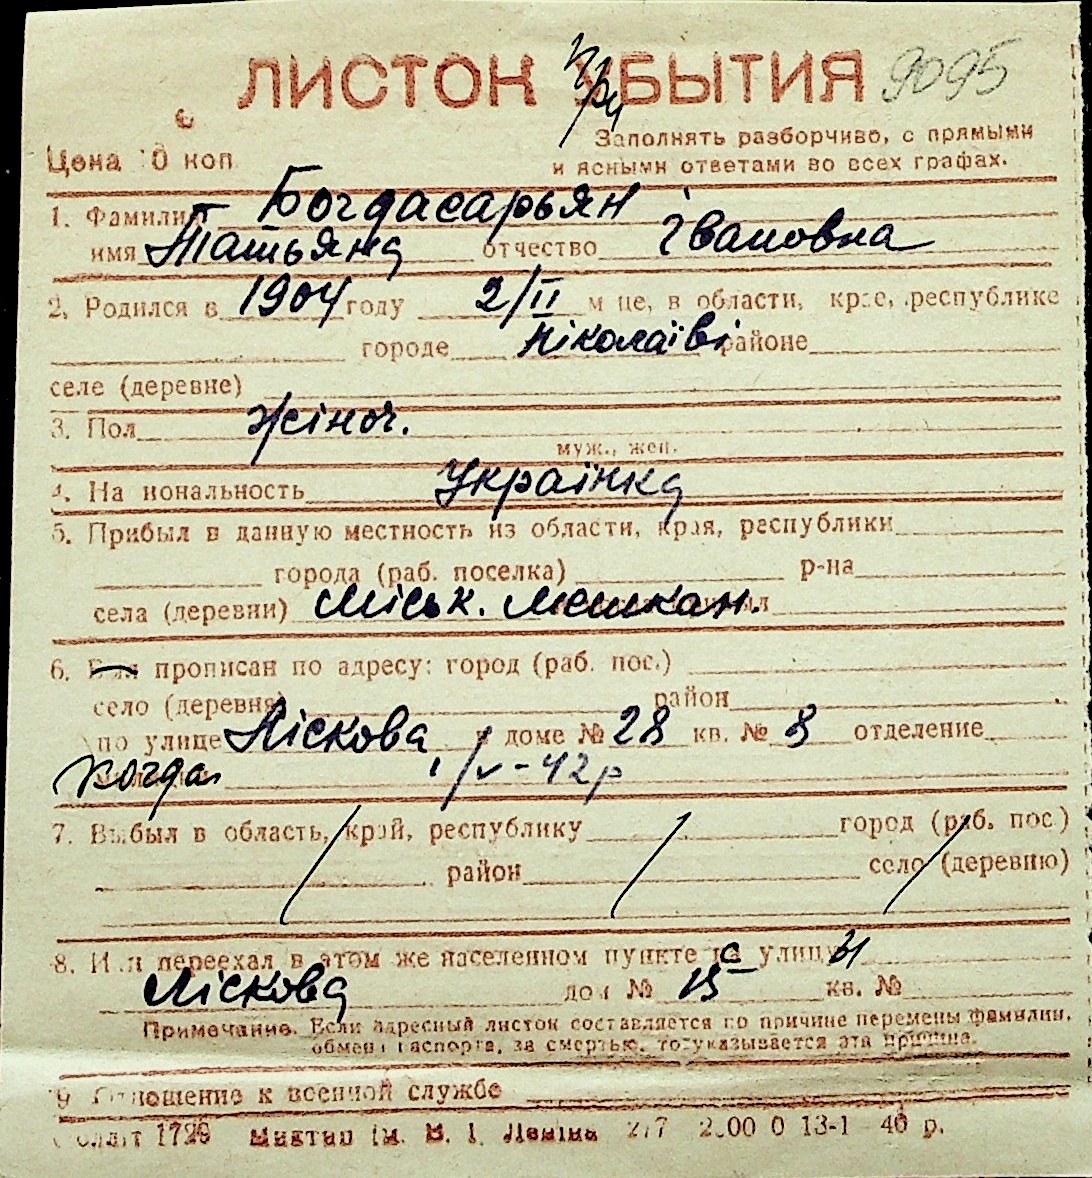 ЛИСТОК УБЫТИЯ 9095
При
Цена 10 коп
Заполнять разборчиво, с прямыми
и ясными ответами во всех графах.
1. Фамилия Богдасарьян
имя Татьяна отчество Івановна
2. Родился в 1904 году 2/II м-це, в области, крае, республике
городе Ніколаїві районе
селе (деревне)
3. Пол жіноч.
муж., жен.
4. Национальность Українка
5. Прибыл в данную местность из области, края, республики
города (раб. поселка) р-на
села (деревни) Міськ. мешкан.
6. прописан по адресу: город (раб. пос.)
село (деревня) район
по улице Ліскова доме № 28 кв. № 8 отделение
Когда 1/V-42р
7. Выбыл в область, край, республику город (раб. пос.)
район село (деревню)
8. Или переехал в этом же населенном пункте с улицы
Ліскова дом № 15 кв. №
Примечание. Если адресный листок составляется по причине перемены фамилии,
обмена паспорта, за смертью, то указывается эта причина.
9 Отношение к военной службе
1729 ім. В. І. Леніна 217 13-1 40 р.